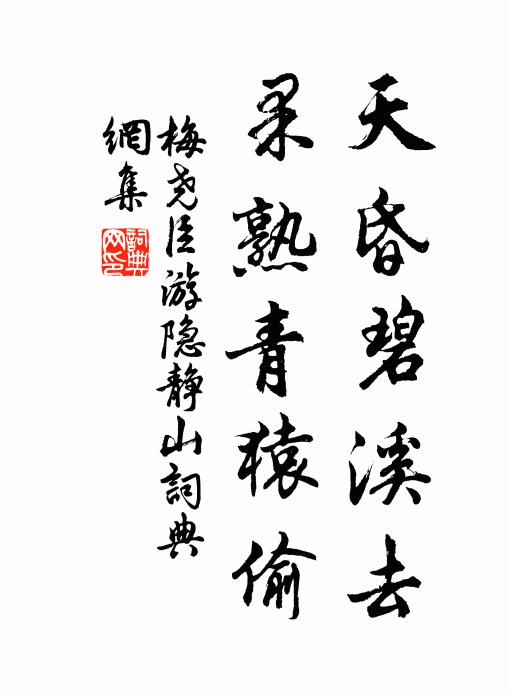 天昏碧溪去
果熟青猿偷
梅尧臣游隐静山詞典
網集
詞典網印